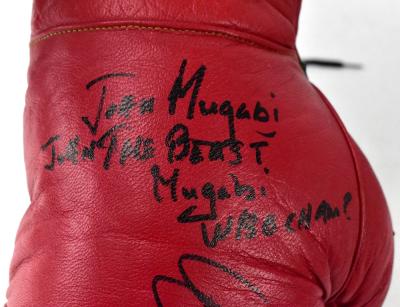 John Mugabi
John The Beast
Mugabi
WBC CHAMP